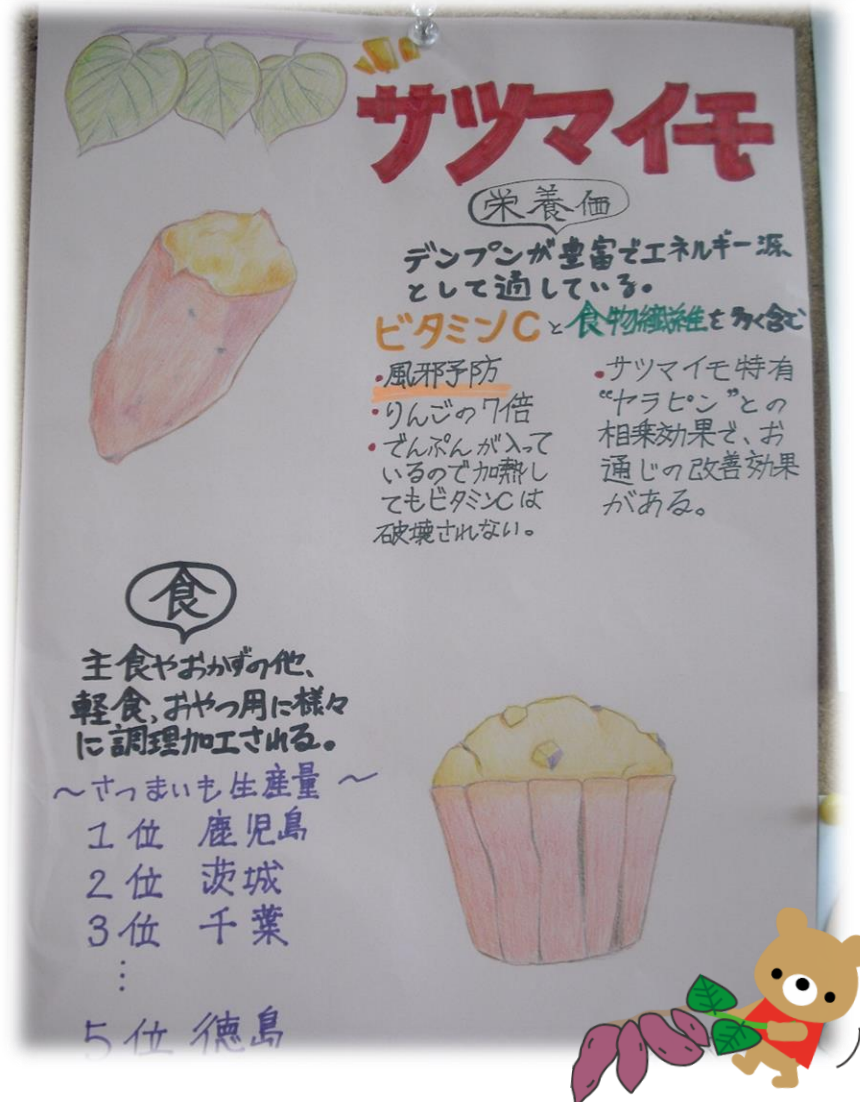 サツマイモ
栄養価
デンプンが豊富でエネルギー源
として適している。
ビタミンCと食物繊維を多く含む
・風邪予防
・りんごの7倍
・でんぷんが入って
いるので加熱し
てもビタミンCは
破壊されない。
・サツマイモ特有
“ヤラピン”との
相乗効果で、お
通じの改善効果
がある。
食
主食やおかずの他、
軽食、おやつ用に様々
に調理加工される。
〜さつまいも生産量〜
1位 鹿児島
2位 茨城
3位 千葉
⋮
5位 徳島